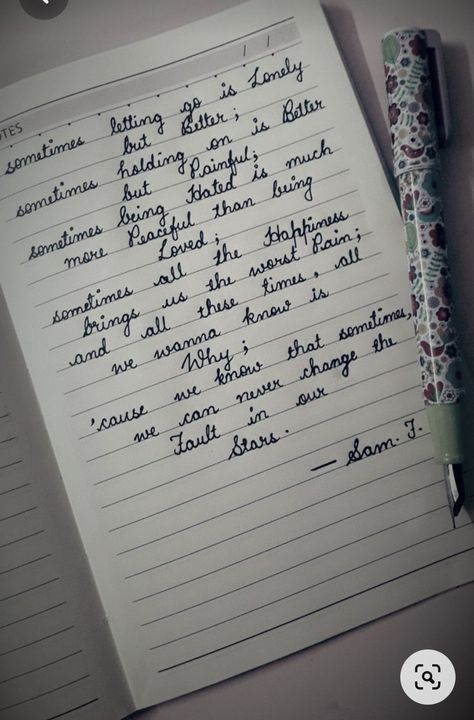 OTES
/ /
sometimes letting go is Lonely
but Better;
sometimes holding on is Better
but Painful;
sometimes being Hated is much
more Peaceful than being
Loved;
sometimes all the Happiness
brings us the worst Pain;
and all these times, all
we wanna know is
Why;
'cause we know that sometimes,
we can never change the
Fault in our
Stars.
— Sam. F.